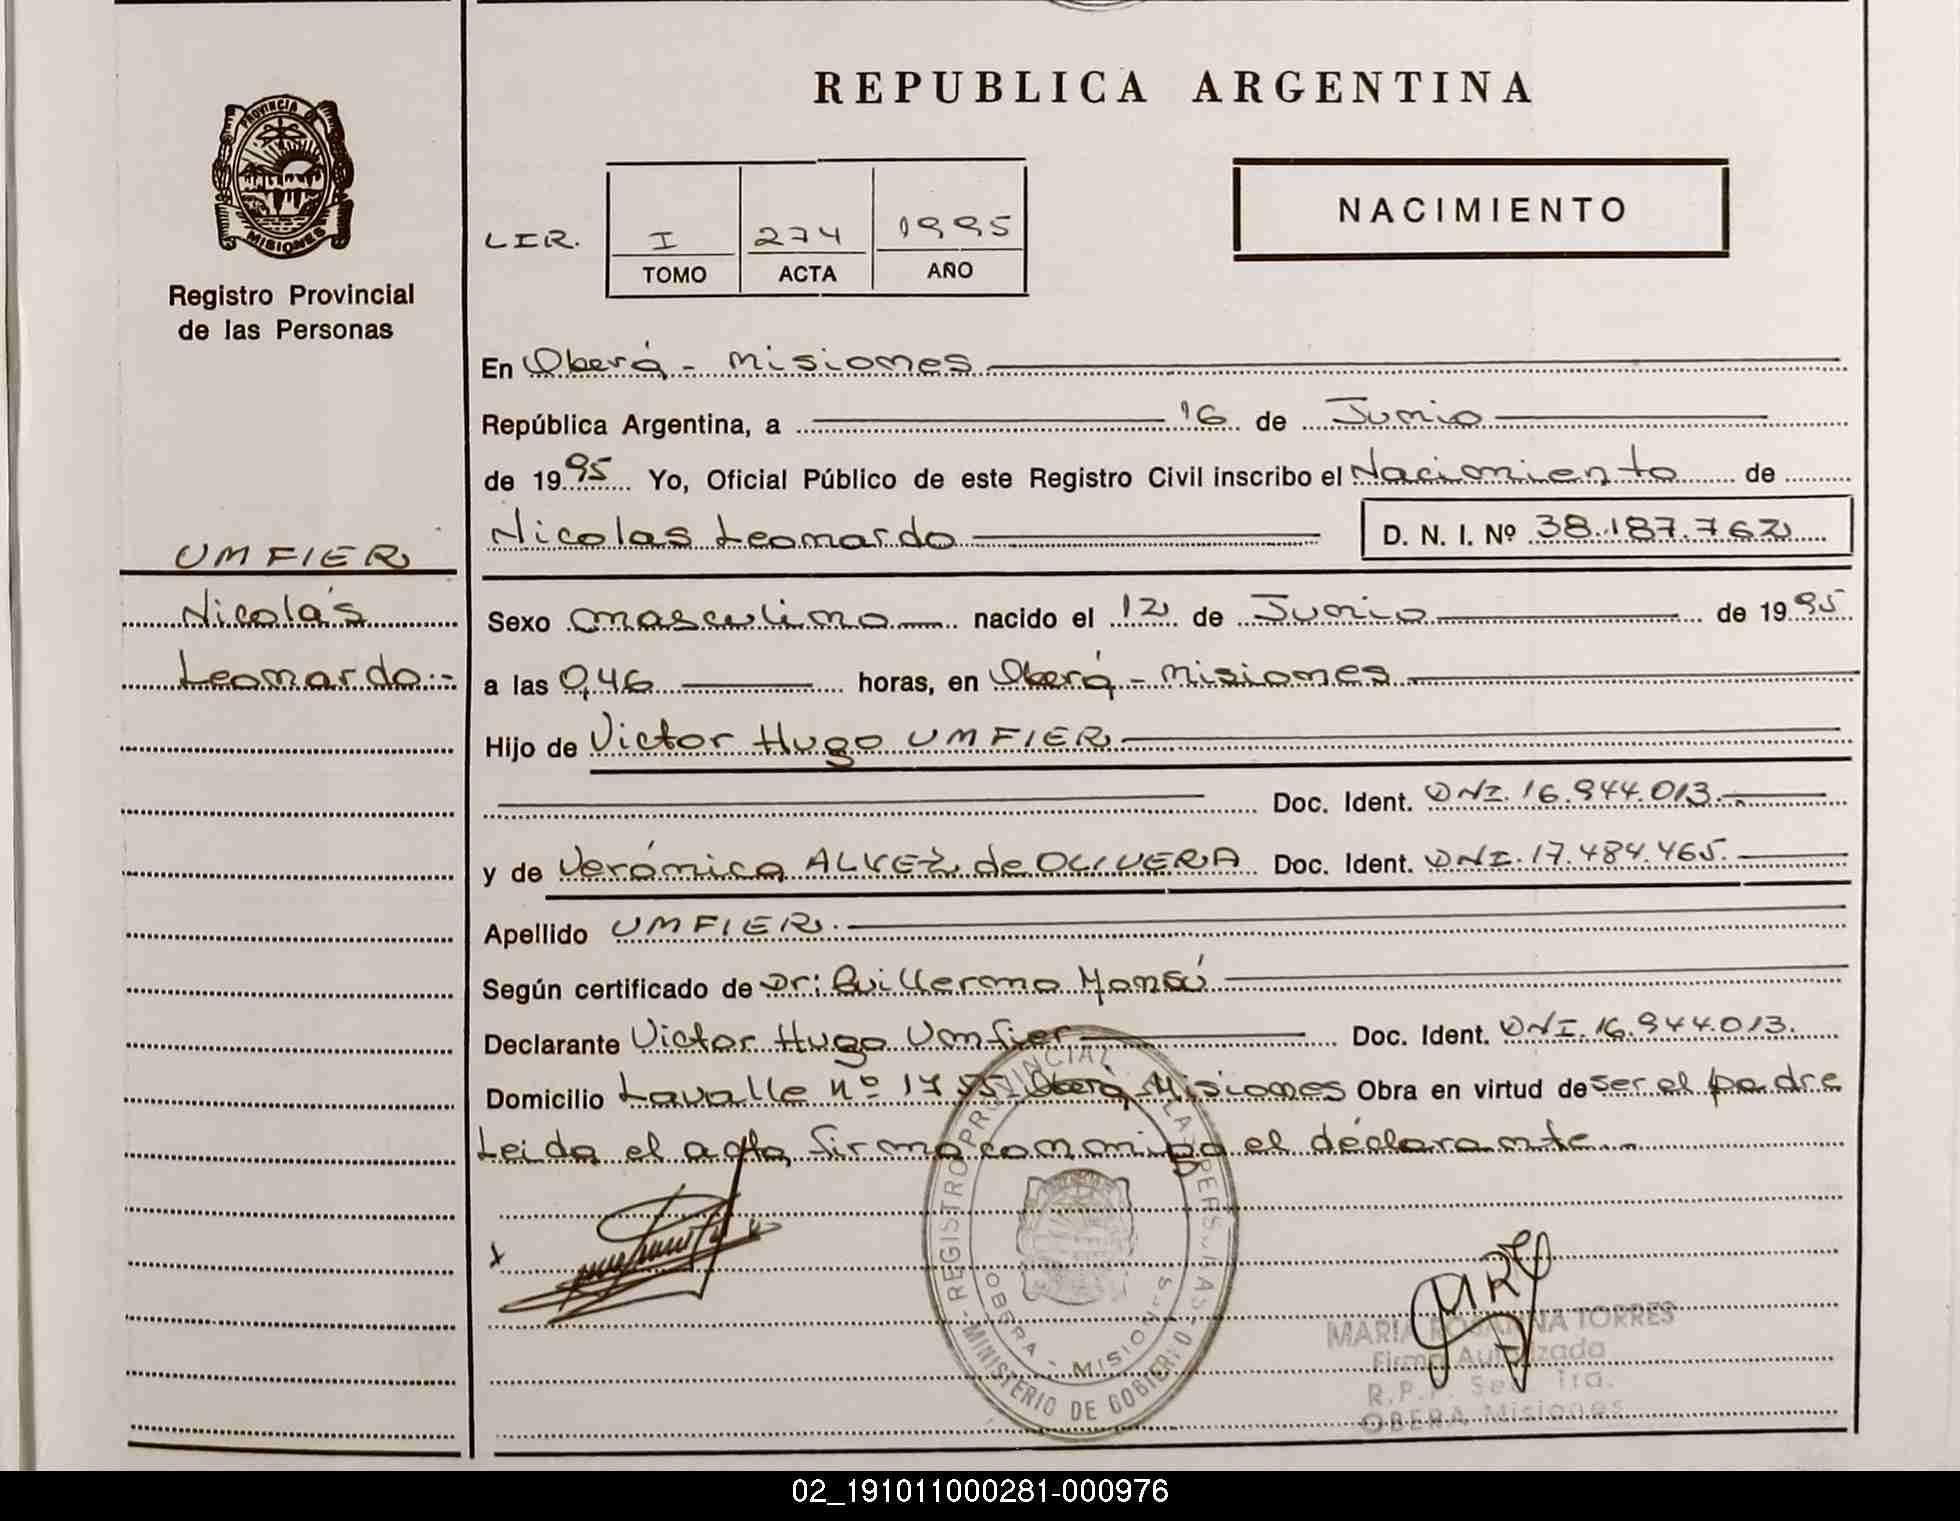 PROVINCIA DE
MISIONES
Registro Provincial
de las Personas
UMFIER
Nicolás
Leonardo.-
REPUBLICA ARGENTINA
NACIMIENTO
LIR. I 274 1995
TOMO ACTA AÑO
En Oberá - Misiones
República Argentina, a 16 de Junio
de 1995 Yo, Oficial Público de este Registro Civil inscribo el Nacimiento de
Nicolas Leonardo D. N. I. Nº 38.187.762
Sexo masculino nacido el 12 de Junio de 1995
a las 0,46 horas, en Oberá - Misiones
Hijo de Victor Hugo UMFIER
Doc. Ident. DNI. 16.944.013.
y de Verónica ALVEZ de OLIVERA Doc. Ident. DNI. 17.484.465.
Apellido UMFIER.
Según certificado de Dr: Guillermo
Declarante Victor Hugo Umfier Doc. Ident. DNI. 16.944.013.
Domicilio Lavalle nº 1755 Oberá Misiones Obra en virtud de ser el padre
Leida el acta, firma conmigo el declarante.-
REGISTRO PROVINCIAL DE LAS PERSONAS
MINISTERIO DE GOBIERNO
OBERA - MISIONES
MARIA ROSANNA TORRES
Firma Autorizada
R.P.P. Sec. 1ra.
OBERA Misiones
02_191011000281-000976